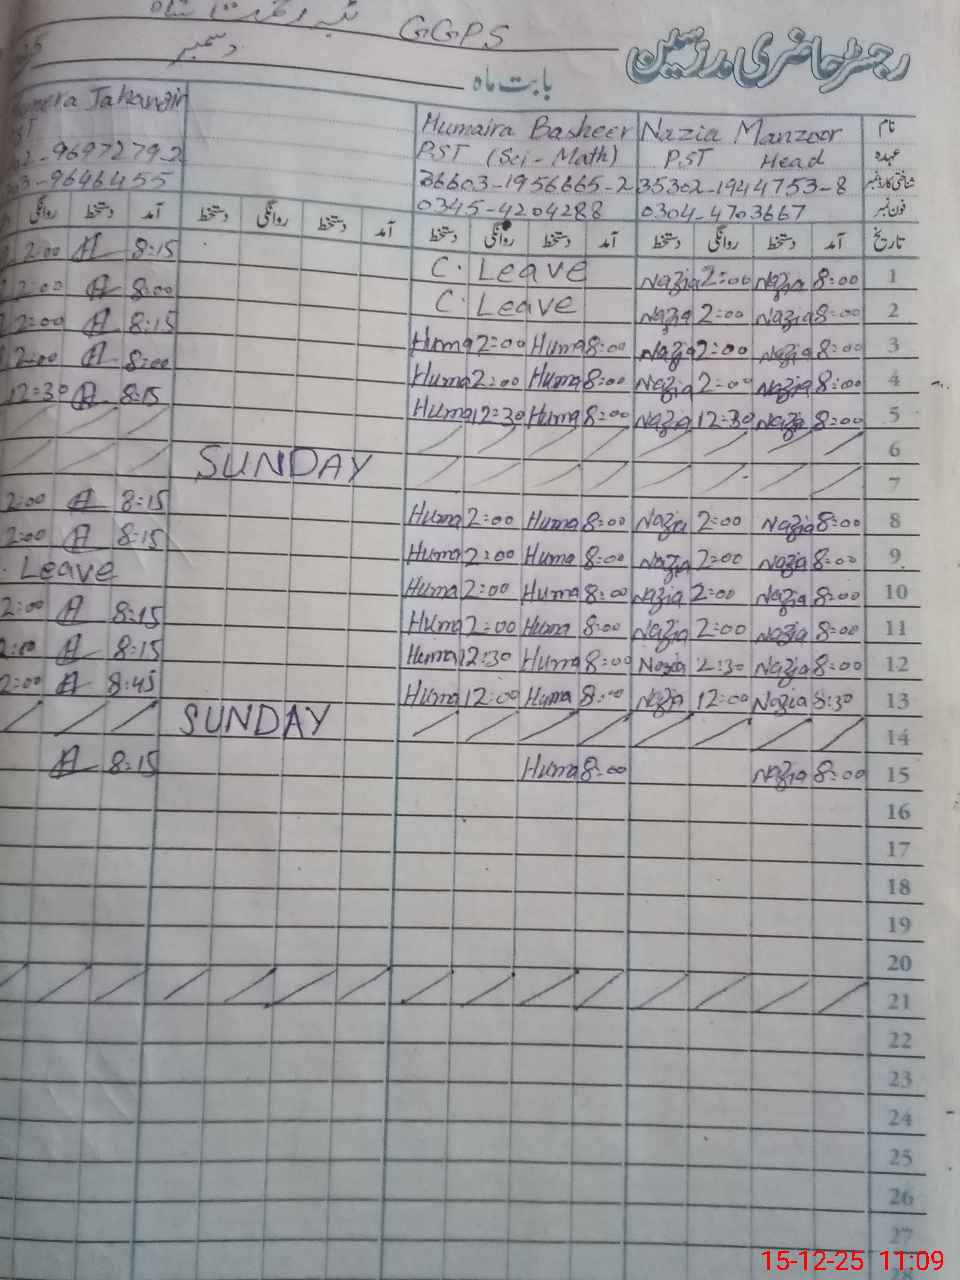 GGPS
رجسٹر حاضری مدرسین
بابت ماہ دسمبر
Jahangir Humaira Basheer Nazia Manzoor نام
PST (Sci-Math) PST Head عہدہ
-9697279 36603-1956665-2 35302-1944753-8 شناختی کارڈ نمبر
-9646455 0345-4204288 0304-4703667 فون نمبر
روانگی دستخط آمد دستخط روانگی دستخط آمد دستخط روانگی دستخط آمد دستخط روانگی دستخط آمد تاریخ
2:00 A 8:15 C. Leave Nazia 2:00 Nazia 8:00 1
2:00 A 8:00 C. Leave Nazia 2:00 Nazia 8:00 2
2:00 A 8:15 Huma 2:00 Huma 8:00 Nazia 2:00 Nazia 8:00 3
2:00 A 8:00 Huma 2:00 Huma 8:00 Nazia 2:00 Nazia 8:00 4
12:30 A 8:15 Huma 12:30 Huma 8:00 Nazia 12:30 Nazia 8:00 5
6
SUNDAY 7
2:00 A 8:15 Huma 2:00 Huma 8:00 Nazia 2:00 Nazia 8:00 8
2:00 A 8:15 Huma 2:00 Huma 8:00 Nazia 2:00 Nazia 8:00 9
. Leave Huma 2:00 Huma 8:00 Nazia 2:00 Nazia 8:00 10
2:00 A 8:15 Huma 2:00 Huma 8:00 Nazia 2:00 Nazia 8:00 11
A 8:15 Huma 12:30 Huma 8:00 Nazia 2:30 Nazia 8:00 12
2:00 A 8:45 Huma 12:00 Huma 8:00 Nazia 12:00 Nazia 8:30 13
SUNDAY 14
A 8:15 Huma 8:00 Nazia 8:00 15
16
17
18
19
20
21
22
23
24
25
26
27
15-12-25 11:09